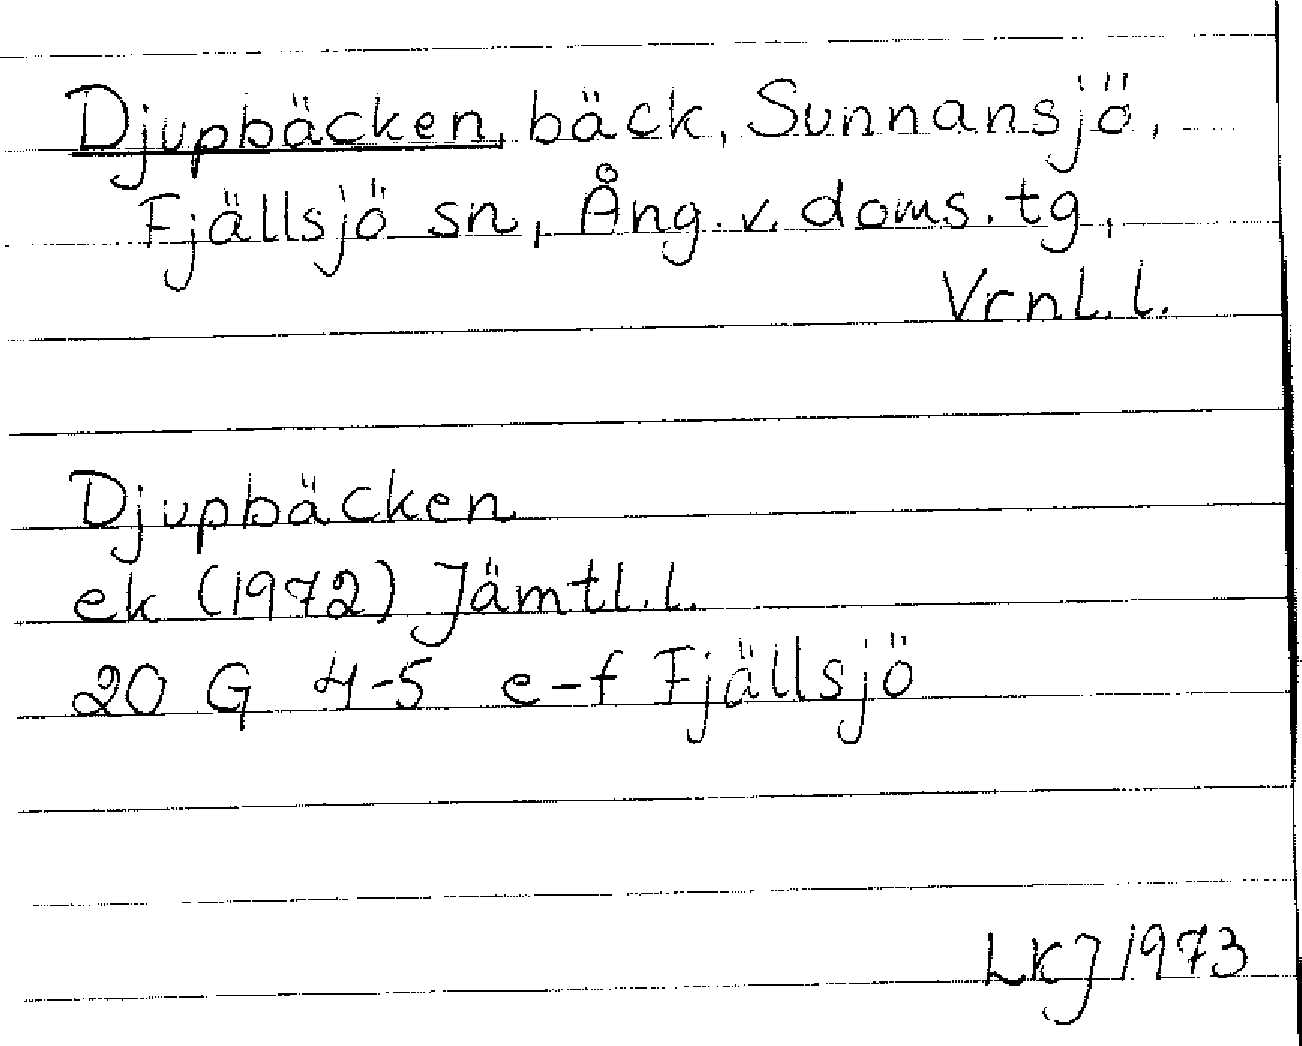 Djupbäcken, bäck, Sunnansjö,
Fjällsjö sn, Ång. v. doms. tg,
Vrnl. l.
Djupbäcken
ek (1972) Jämtl. l.
20 G 4-5 e-f Fjällsjö
LKJ 1973